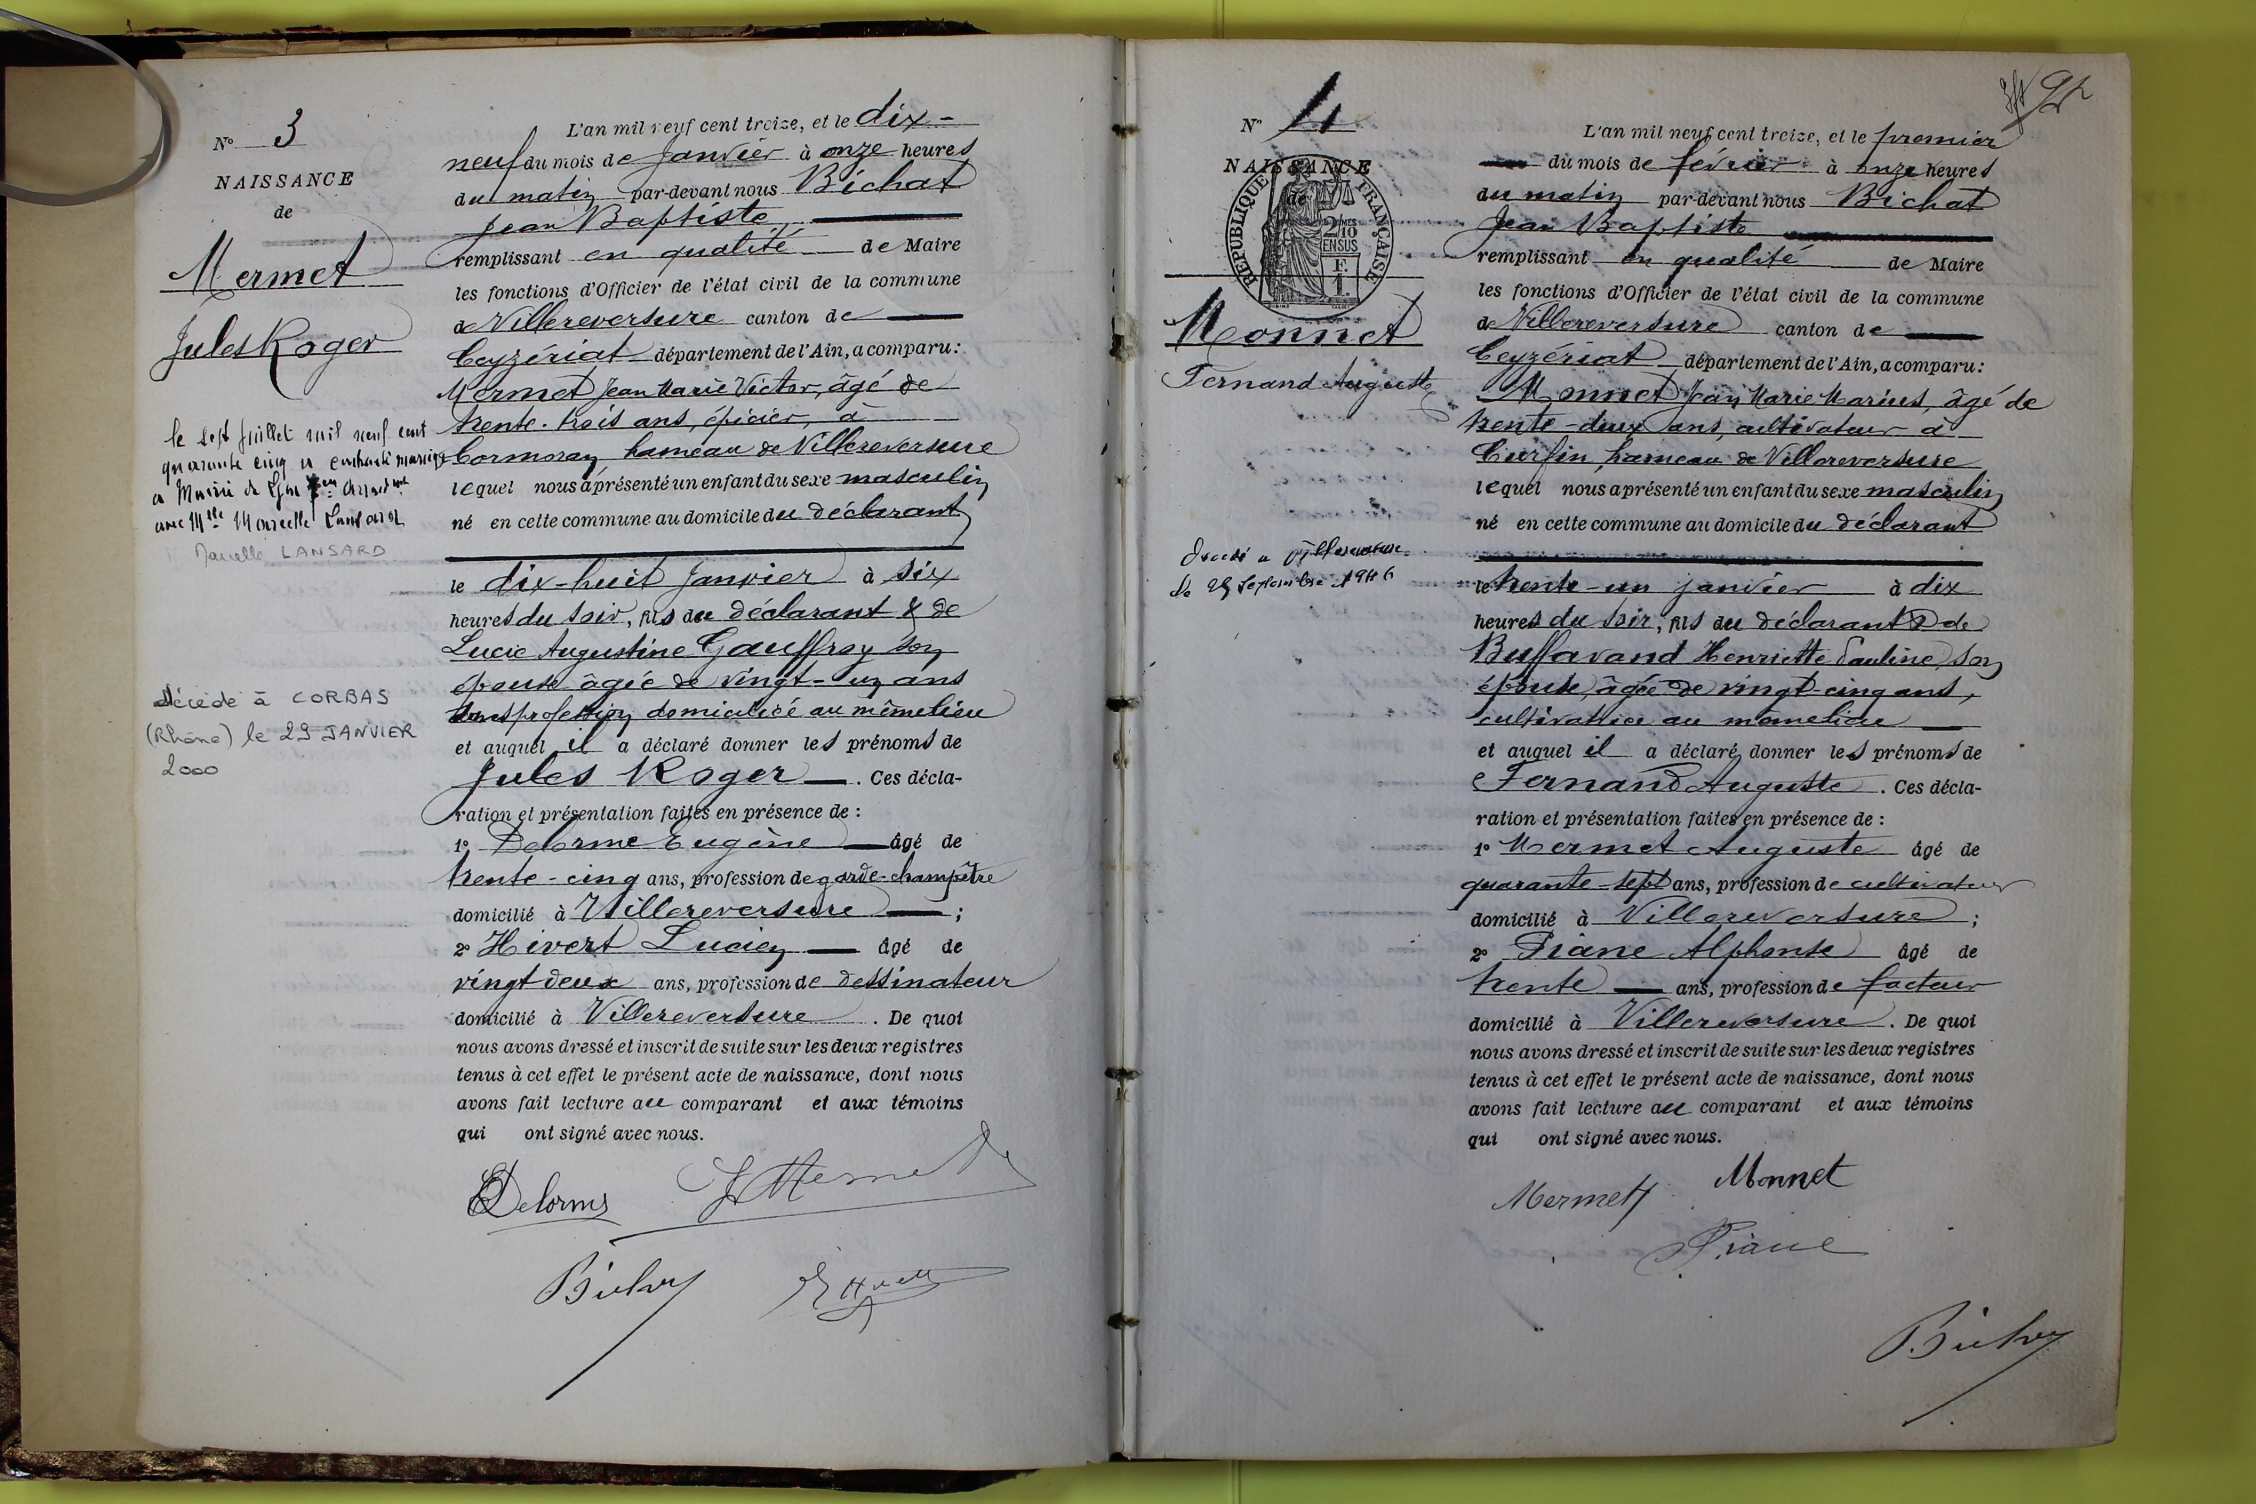 N° 3
NAISSANCE
de
Mermet
Jules Roger
le sept juillet mil neuf cent
quarante cinq a contracté mariage
a Mairie de Lyon
avec Mlle Marcelle Lansard
Marcelle LANSARD
décédé à CORBAS
(Rhône) le 29 JANVIER
2000
L'an mil neuf cent treize, et le dix-
neuf du mois de Janvier à onze heures
du matin par-devant nous Bichat
Jean Baptiste
remplissant en qualité de Maire
les fonctions d'Officier de l'état civil de la commune
de Villereversure canton de
Ceyzériat département de l'Ain, a comparu:
Mermet Jean Marie Victor, âgé de
trente-trois ans, épicier, à
Cormoray hameau de Villereversure
lequel nous a présenté un enfant du sexe masculin
né en cette commune au domicile du déclarant
le dix-huit Janvier à six
heures du soir, fils du déclarant & de
Lucie Augustine Gauffray son
épouse âgée de vingt-un ans
sans profession domicilié au même lieu
et auquel il a déclaré donner les prénoms de
Jules Roger. Ces décla-
ration et présentation faites en présence de :
1° Delorme Eugène âgé de
trente-cinq ans, profession de garde-champêtre
domicilié à Villereversure ;
2° Hivert Lucien âgé de
vingt-deux ans, profession de dessinateur
domicilié à Villereversure. De quoi
nous avons dressé et inscrit de suite sur les deux registres
tenus à cet effet le présent acte de naissance, dont nous
avons fait lecture au comparant et aux témoins
qui ont signé avec nous.
EDelorme
JMermet
Bichat
N° 4
NAISSANCE
de
RÉPUBLIQUE FRANÇAISE
2/10
EN SUS
F.
1.
Monnet
Fernand Auguste
Décédé a Villereversure
le 29 Septembre 1946
L'an mil neuf cent treize, et le premier
du mois de février à onze heures
du matin par-devant nous Bichat
Jean Baptiste
remplissant en qualité de Maire
les fonctions d'Officier de l'état civil de la commune
de Villereversure canton de
Ceyzériat département de l'Ain, a comparu:
Monnet Jean Marie Marius, âgé de
trente-deux ans, cultivateur à
Curfin, hameau de Villereversure
lequel nous a présenté un enfant du sexe masculin
né en cette commune au domicile du déclarant
le trente-un janvier à dix
heures du soir, fils du déclarant & de
Buffavand Henriette Pauline, son
épouse, âgée de vingt-cinq ans,
cultivatrice au même lieu
et auquel il a déclaré donner les prénoms de
Fernand Auguste. Ces décla-
ration et présentation faites en présence de :
1° Mermet Auguste âgé de
quarante-sept ans, profession de cultivateur
domicilié à Villereversure ;
2° Piane Alphonse âgé de
trente ans, profession de facteur
domicilié à Villereversure. De quoi
nous avons dressé et inscrit de suite sur les deux registres
tenus à cet effet le présent acte de naissance, dont nous
avons fait lecture au comparant et aux témoins
qui ont signé avec nous.
Monnet
Mermet
Piane
Bichat